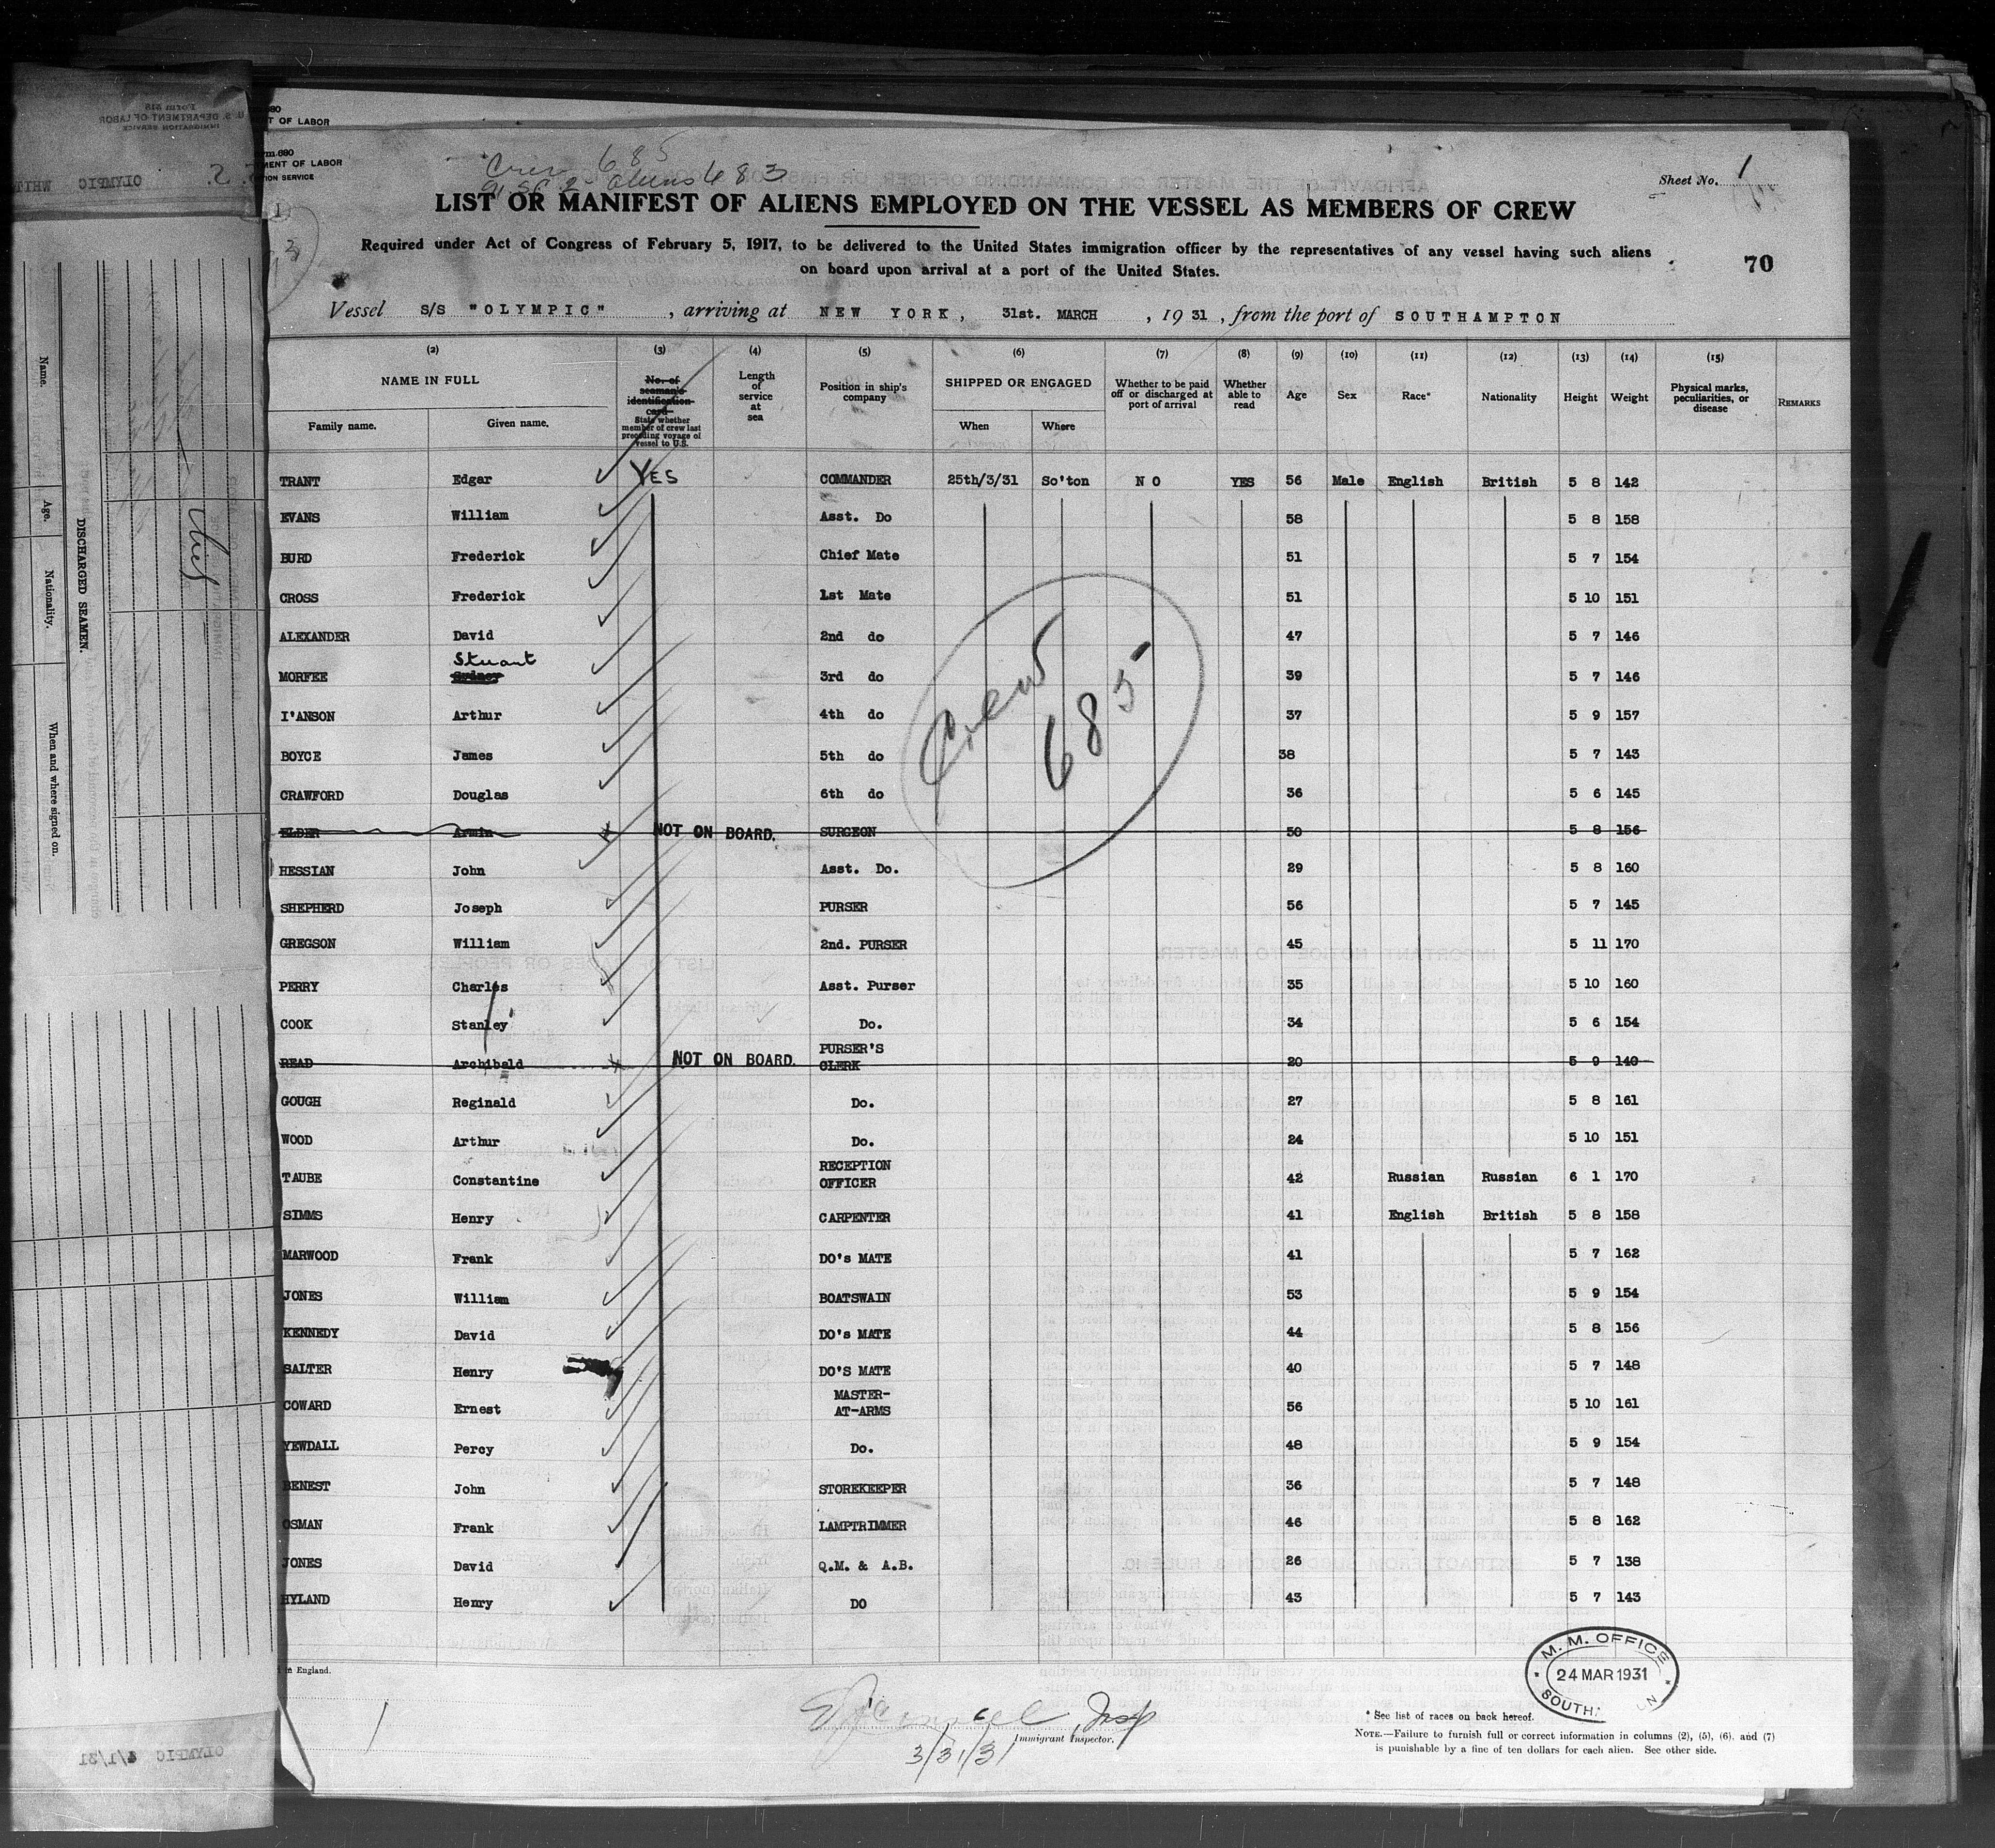 Form 680
DEPARTMENT OF LABOR
IMMIGRATION SERVICE
Crew 685
Aliens 683
Sheet No. 1
LIST OR MANIFEST OF ALIENS EMPLOYED ON THE VESSEL AS MEMBERS OF CREW
Required under Act of Congress of February 5, 1917, to be delivered to the United States immigration officer by the representatives of any vessel having such aliens
on board upon arrival at a port of the United States.
70
Vessel S/S "OLYMPIC", arriving at NEW YORK, 31st. MARCH, 1931, from the port of SOUTHAMPTON
(2) (3) (4) (5) (6) (7) (8) (9) (10) (11) (12) (13) (14) (15)
NAME IN FULL
Family name. Given name.
No. of seaman's identification card
State whether member of crew last preceding voyage of vessel to U.S.
Length of service at sea
Position in ship's company
SHIPPED OR ENGAGED
When Where
Whether to be paid off or discharged at port of arrival
Whether able to read
Age Sex Race* Nationality Height Weight
Physical marks, peculiarities, or disease
REMARKS
TRANT Edgar YES COMMANDER 25th/3/31 So'ton NO YES 56 Male English British 5 8 142
EVANS William Asst. Do 58 5 8 158
BURD Frederick Chief Mate 51 5 7 154
CROSS Frederick 1st Mate 51 5 10 151
ALEXANDER David 2nd do 47 5 7 146
MORFEE Stuart 3rd do 39 5 7 146
I'ANSON Arthur 4th do 37 5 9 157
BOYCE James 5th do 38 5 7 143
CRAWFORD Douglas 6th do 36 5 6 145
ELDER NOT ON BOARD. SURGEON 50 5 8 156
HESSIAN John Asst. Do. 29 5 8 160
SHEPHERD Joseph PURSER 56 5 7 145
GREGSON William 2nd. PURSER 45 5 11 170
PERRY Charles Asst. Purser 35 5 10 160
COOK Stanley Do. 34 5 6 154
READ Archibald NOT ON BOARD. PURSER'S CLERK 20 5 9 140
GOUGH Reginald Do. 27 5 8 161
WOOD Arthur Do. 24 5 10 151
TAUBE Constantine RECEPTION OFFICER 42 Russian Russian 6 1 170
SIMMS Henry CARPENTER 41 English British 5 8 158
MARWOOD Frank DO's MATE 41 5 7 162
JONES William BOATSWAIN 53 5 9 154
KENNEDY David DO's MATE 44 5 8 156
SALTER Henry DO'S MATE 40 5 7 148
COWARD Ernest MASTER-AT-ARMS 56 5 10 161
YEWDALL Percy Do. 48 5 9 154
BENEST John STOREKEEPER 36 5 7 148
OSMAN Frank LAMPTRIMMER 46 5 8 162
JONES David Q.M. & A.B. 26 5 7 138
HYLAND Henry DO 43 5 7 143
Crew
685
in England.
Insp
Immigrant Inspector.
3/31/31
M. M. OFFICE
24 MAR 1931
* See list of races on back hereof.
NOTE.—Failure to furnish full or correct information in columns (2), (5), (6), and (7)
is punishable by a fine of ten dollars for each alien. See other side.
DISCHARGED SEAMEN.
Name.
Age.
Nationality.
When and where signed on.
Form 518
U. S. DEPARTMENT OF LABOR
IMMIGRATION SERVICE
S. S. OLYMPIC WHITE
OLYMPIC 4/1/31